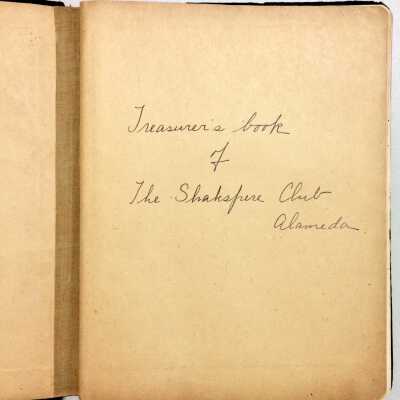 Treasurer's book
of
The Shakspere Club
Alameda